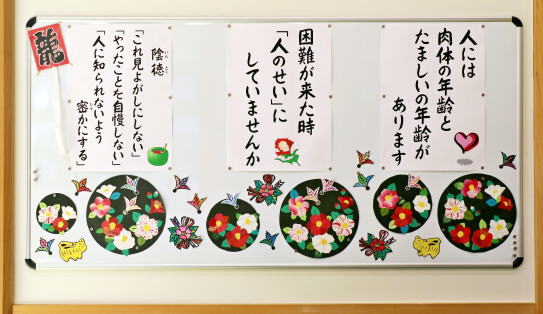 人には
肉体の年齢と
たましいの年齢が
あります
困難が来た時
「人のせい」に
していませんか
龍
陰徳
「これ見よがしにしない」
「やったことを自慢しない」
「人に知られないよう
密かにする」